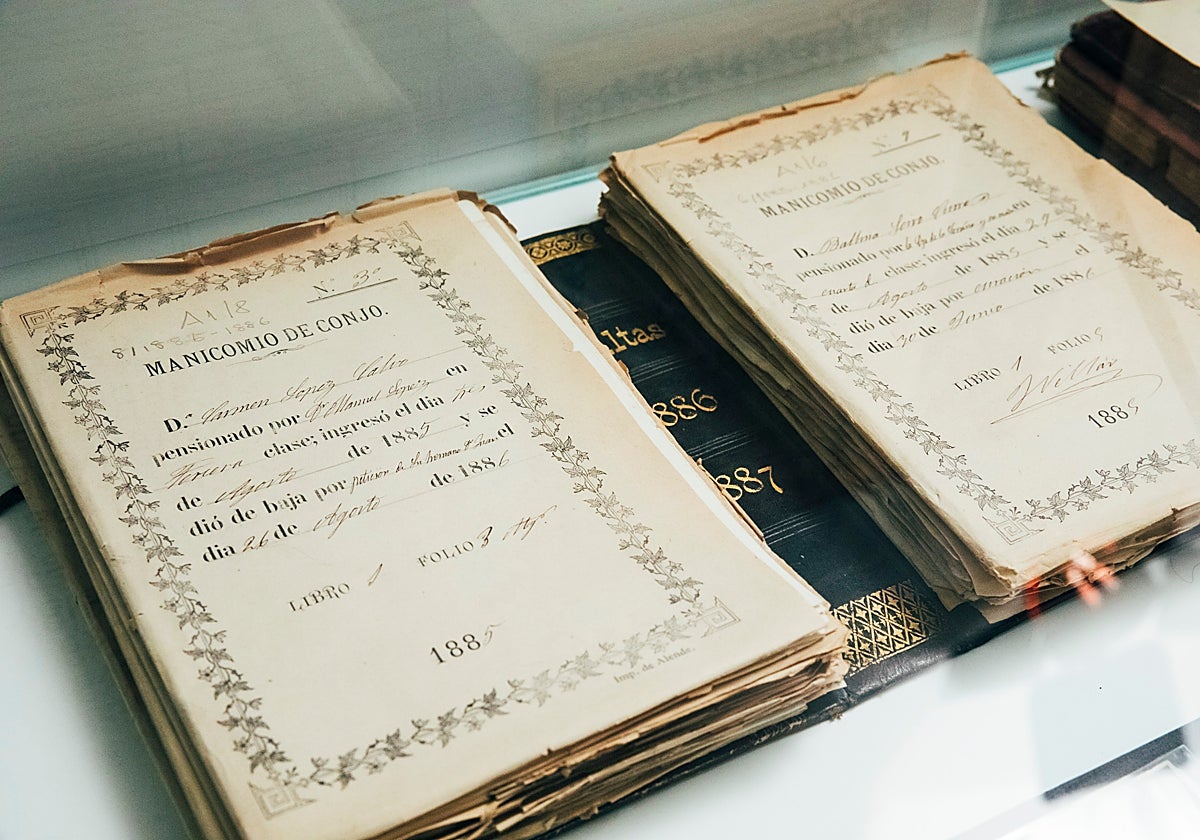 Nº 3º
A1/8
8/1885-1886
MANICOMIO DE CONJO.
D.ª Carmen Lopez Valiz
pensionado por D. Manuel Lopez en
tercera clase; ingresó el día
de Agosto de 1885 y se
dió de baja por peticion de su hermano el
día 26 de Agosto de 1886
LIBRO 1 FOLIO 3
1885
Imp. de Alende.
ltas
886
887
Nº 9
A1/6
MANICOMIO DE CONJO.
D.
pensionado por en
cuarta clase; ingresó el día 29
de Agosto de 1885 y se
dió de baja por curación el
día 20 de Junio de 1886
LIBRO 1 FOLIO 5
JVillar
1885